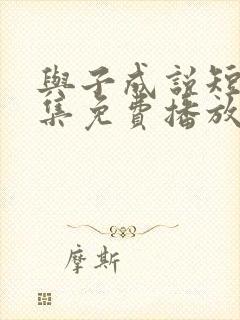 與子成説短
集免費播放
摩斯